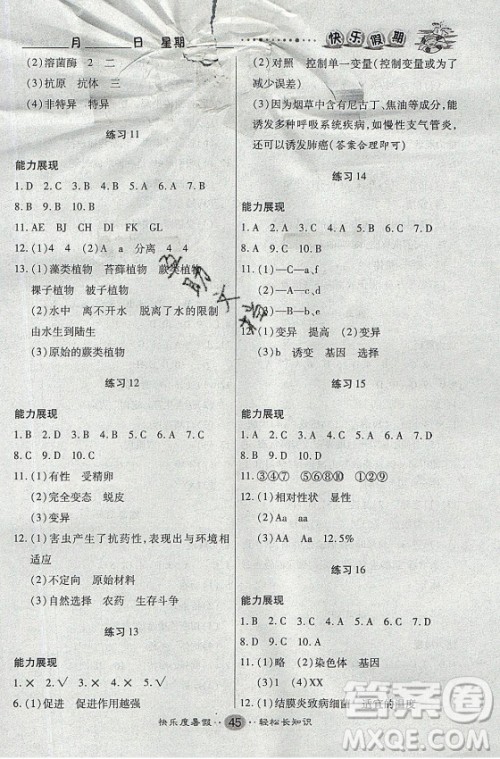 月 日 星期
快乐假期
(2)溶菌酶 2 二
(3)抗原 抗体 三
(4)非特异 特异
练习11
能力展现
1. D 2. C 3. B 4. B 5. B 6. B 7. D
8. B 9. D 10. C
11. AE BJ CH DI FG
12. (1)4 (2)A a 分离 4 4
13. (1)藻类植物 苔藓植物 蕨类植物
裸子植物 被子植物
(2)水中 离不开水 脱离了水的限制
由水生到陆生
(3)原始的蕨类植物
练习12
能力展现
1. D 2. C 3. B 4. B 5. B 6. B 7. B
8. C 9. D 10. C
11. (1)有性 受精卵
(2)完全变态 蜕皮
(3)变异
12. (1)害虫产生了抗药性,表现出与环境相
适应
(2)不定向 原始材料
(3)自然选择 农药 生存斗争
练习13
能力展现
1. × 2. × 3. √ 4. × 5. √
6. (1)促进 促进作用越强
(2)对照 控制单一变量(控制变量或为了
减少误差)
(3)因为烟草中含有尼古丁、焦油等成分,能
诱发多种呼吸系统疾病,如慢性支气管炎,
会诱发肺癌(答案合理即可)
练习14
能力展现
1. D 2. A 3. C 4. B 5. C 6. B 7. D
8. A 9. C 10. D
11. (1)—C—a、f
(2)—A—d、e
(3)—B—b、c
12. (1)变异 提高 (2)变异
(3)b 诱变 基因 选择
练习15
能力展现
1. B 2. D 3. C 4. C 5. A 6. C 7. D
8. A 9. B 10. C
11. ③④⑦ ⑤⑥⑧⑩ ①②⑨
12. (1)相对性状 显性
(2)Aa aa
(3)Aa Aa 12.5%
练习16
能力展现
1. B 2. C 3. C 4. D 5. A 6. C 7. D
8. C 9. A 10. C
11. (1)略 (2)染色体 基因
(3)1 (4)XX
12. (1)结膜炎致病细菌 适宜的温度
快乐度暑假 · 45 · 轻松长知识
答案圈
MXQE.COM